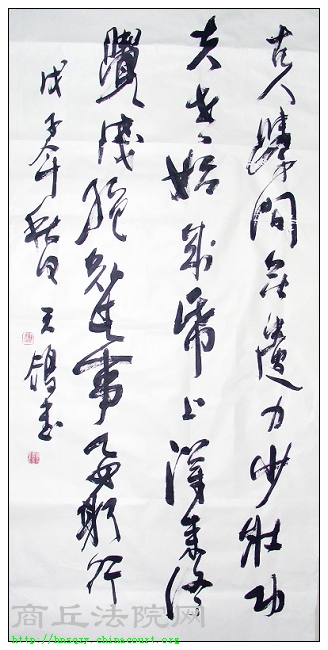 古人學問无遺力少壯功
夫老始成帋上得来終
覺淺絕知此事要躬行
戊子年秋日天鴿书
商丘法院网
http://hnsqzy.chinacourt.org